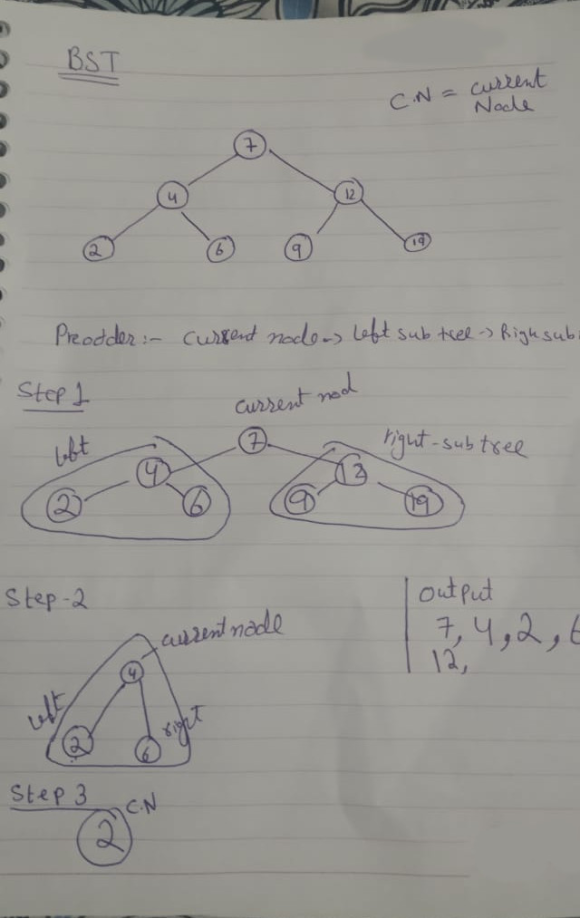 BST
C.N = current
Node
7
4 12
2 6 9 19
Preodder :- Current node -> Left sub tree -> Righ sub
Step 1
current nod
left 7 right-sub tree
4 12
2 6 9 19
Step-2
current node
4
left right
2 6
output
7, 4, 2, 6
12,
Step 3
C.N
2